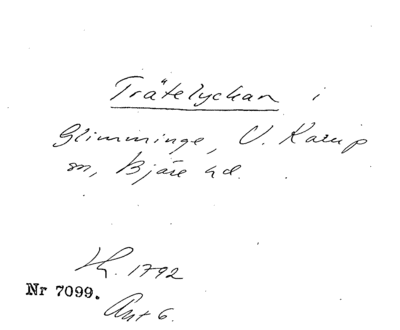 Trätelyckan i
Glimminge, V. Karup
sn, Bjäre hd.
Lh. 1792
Nr 7099.
Akt 6.